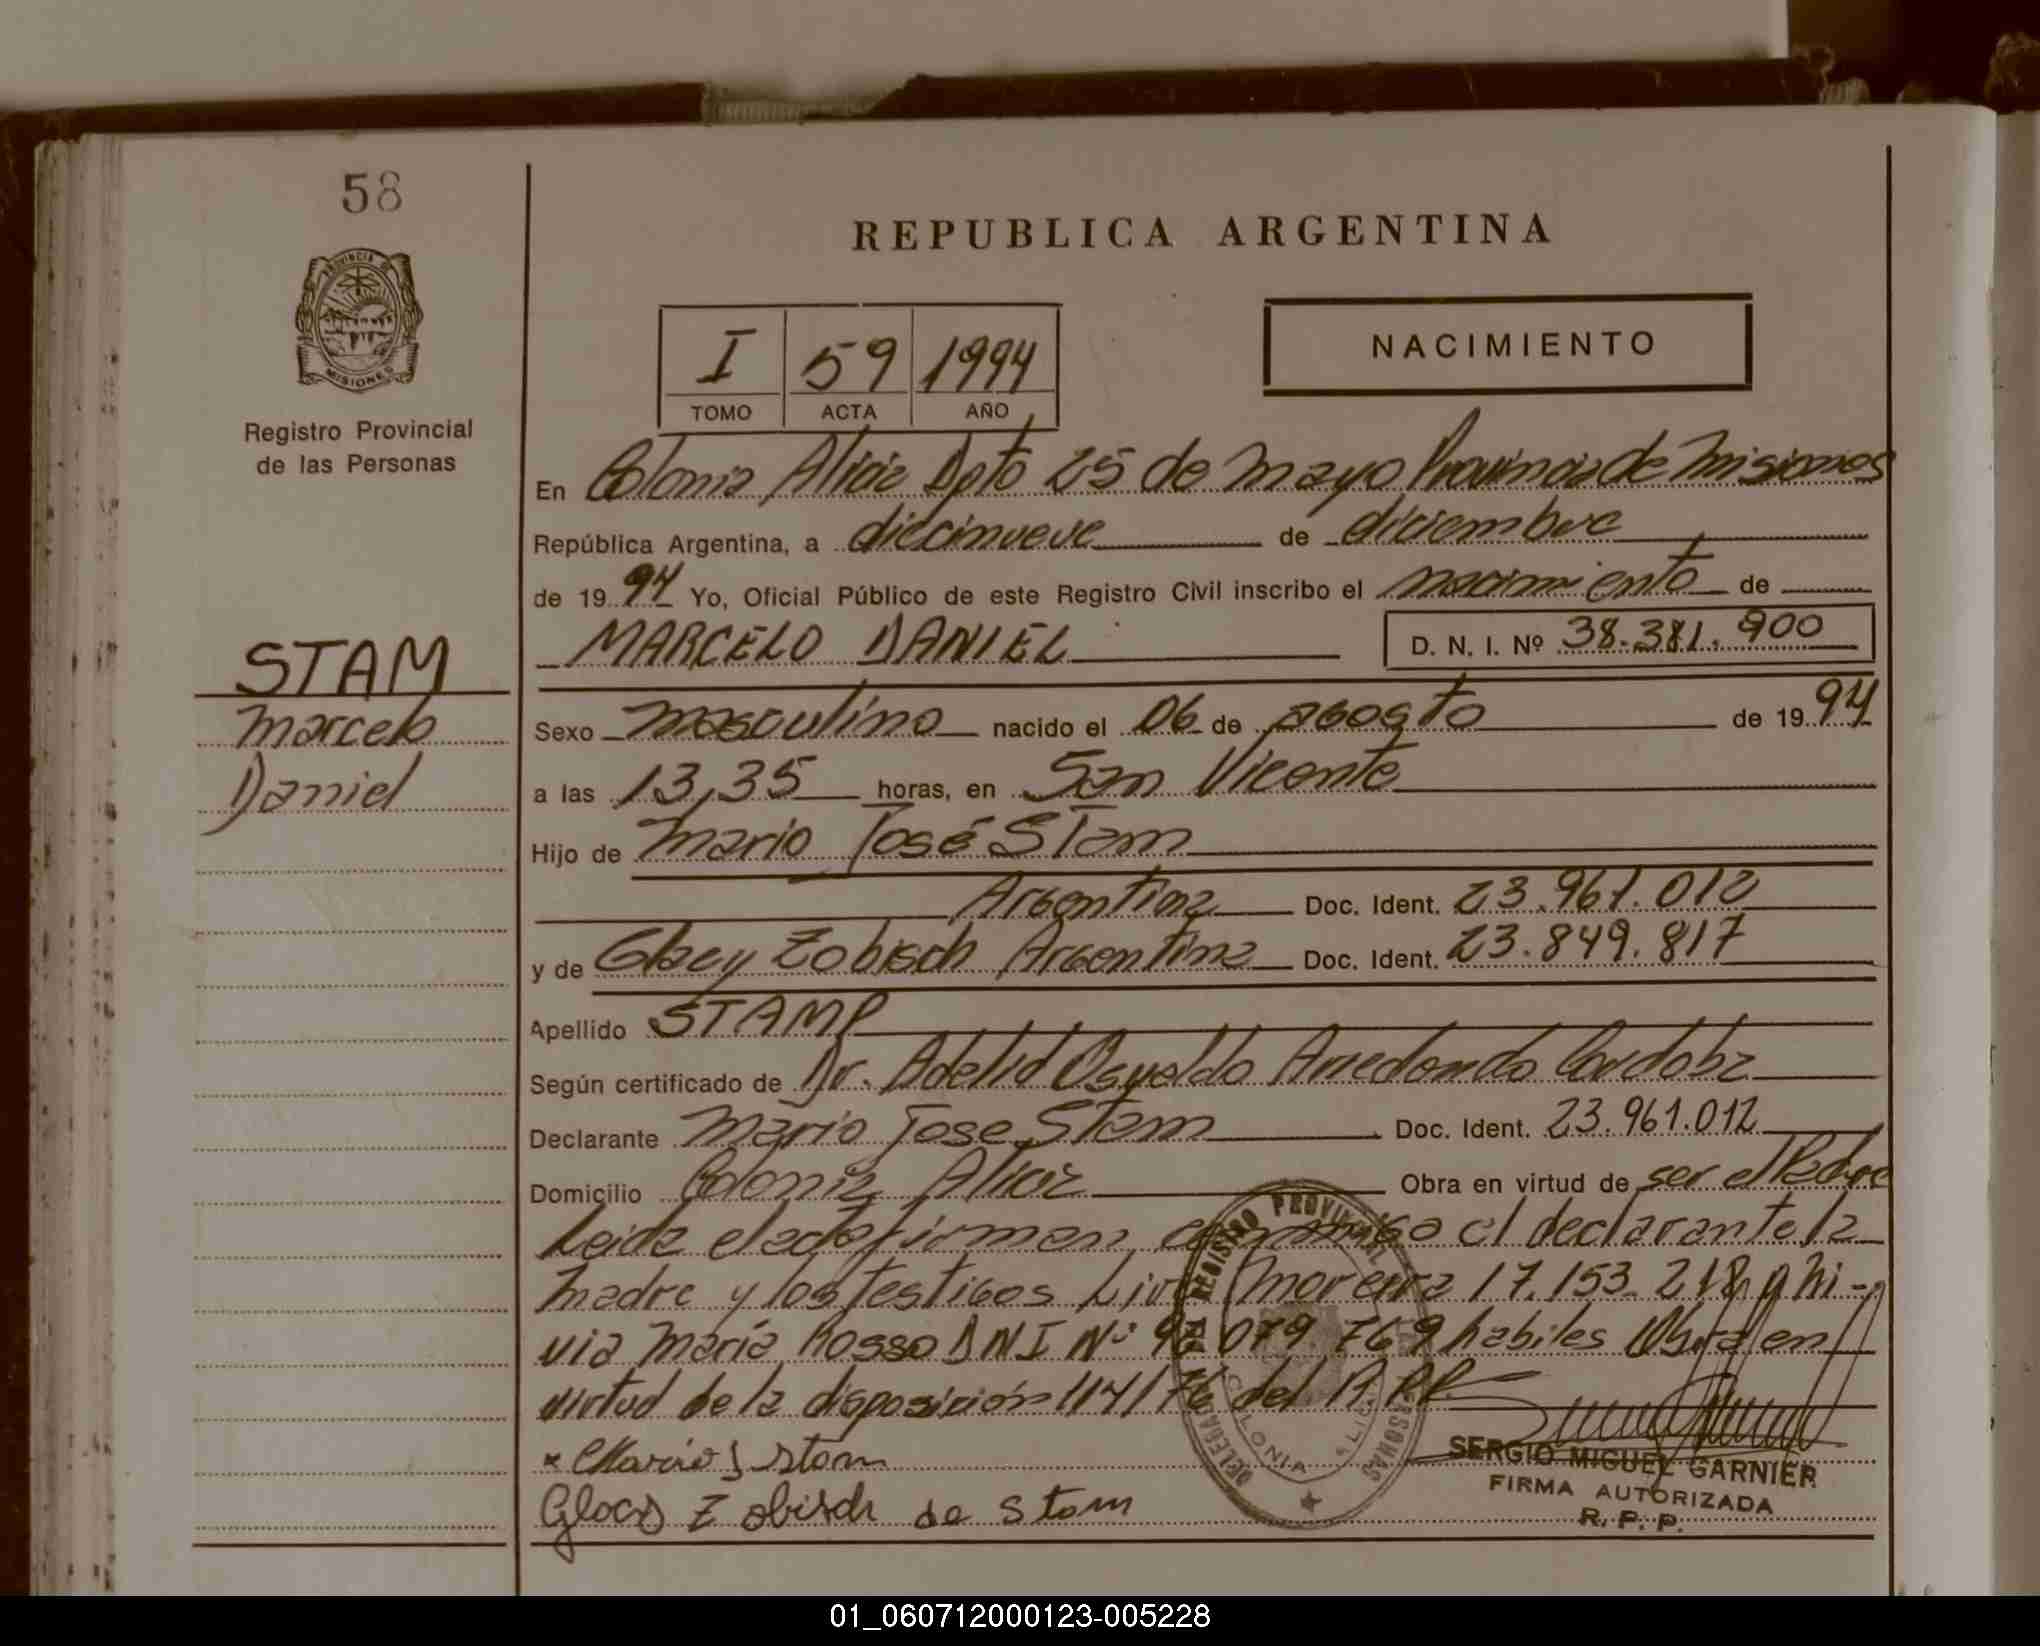 58
REPUBLICA ARGENTINA
PROVINCIA DE
MISIONES
I 59 1994
TOMO ACTA AÑO
NACIMIENTO
Registro Provincial
de las Personas
En Colonia Alicia Dpto 25 de Mayo Provincia de Misiones
República Argentina, a diecinueve de diciembre
de 1994 Yo, Oficial Público de este Registro Civil inscribo el nacimiento de
MARCELO DANIEL D. N. I. Nº 38.381.900
STAM
Marcelo
Daniel
Sexo masculino nacido el 06 de agosto de 1994
a las 13,35 horas, en San Vicente
Hijo de Mario José Stam
Argentina Doc. Ident. 23.961.012
y de Glacy Zobisch Argentina Doc. Ident. 23.849.817
Apellido STAMP
Según certificado de Dr. Adelid Osvaldo Arredondo Cordoba
Declarante Mario Jose Stam Doc. Ident. 23.961.012
Domicilio Colonia Alicia Obra en virtud de ser el Padre
Leida el acta firman conmigo el declarante la
madre y los testigos Moreira 17.153.218
Maria Rosso DNI Nº 079 769 habiles Obra en
virtud de la disposición 114/76 del R.P.P.
x Mario J Stam
Glacy Zobisch de Stam
REGISTRO PROVINCIAL DE LAS PERSONAS
DELEGACION
COLONIA ALICIA
SERGIO MIGUEL GARNIER
FIRMA AUTORIZADA
R. P. P.
01_060712000123-005228